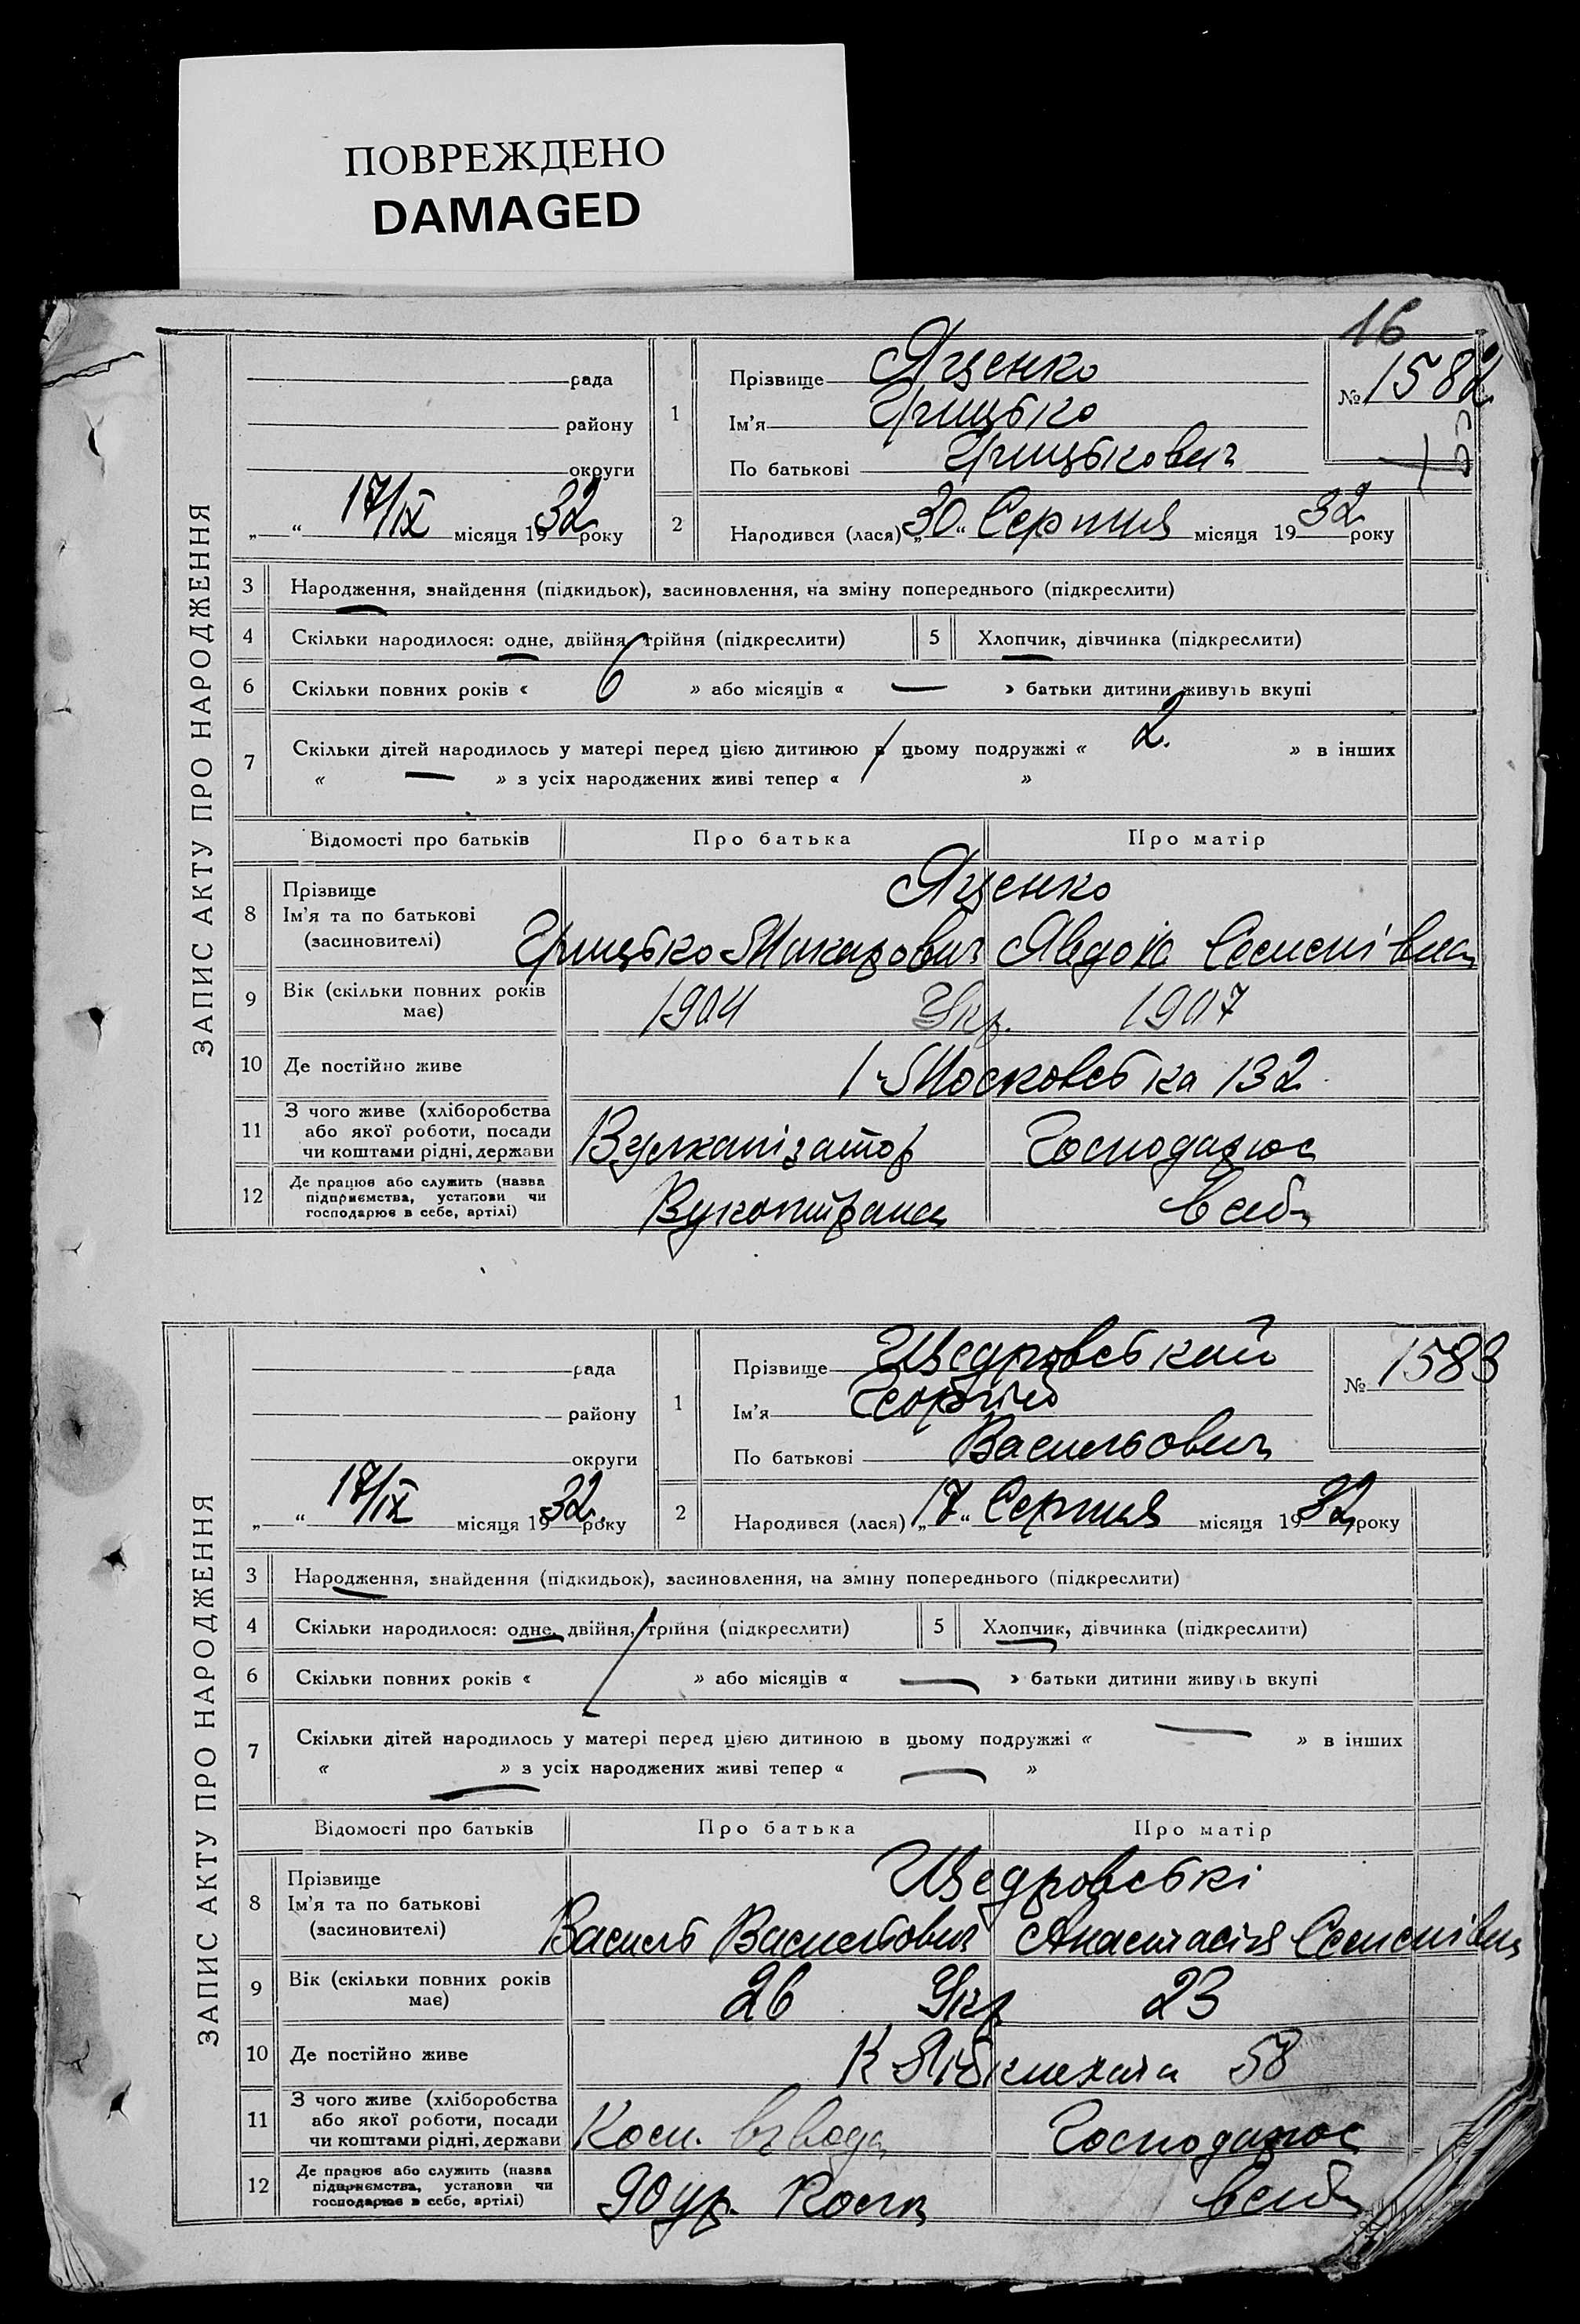 ПОВРЕЖДЕНО
DAMAGED
16
ЗАПИС АКТУ ПРО НАРОДЖЕННЯ
рада
району
округи
„ “ 17/IX місяця 1932 року
1
Прізвище Яценко
Ім’я Грицько
По батькові Грицькович
№ 1582
2 Народився (лася) „30“ Серпня місяця 1932 року
3 Народження, знайдення (підкидьок), засиновлення, на зміну попереднього (підкреслити)
4 Скільки народилося: одне, двійня, трійня (підкреслити) 5 Хлопчик, дівчинка (підкреслити)
6 Скільки повних років « 6 » або місяців « — » батьки дитини живуть вкупі
7 Скільки дітей народилось у матері перед цією дитиною в цьому подружжі « 2. » в інших
« — » з усіх народжених живі тепер « »
Відомості про батьків Про батька Про матір
8 Прізвище Яценко
Ім’я та по батькові
(засновителі) Грицько Макарович Явдоха Семенівна
9 Вік (скільки повних років має) 1904 Укр. 1907
10 Де постійно живе 1 Московська 132
11 З чого живе (хліборобства
або якої роботи, посади
чи коштами рідні, держави Вулканізатор Господарює
12 Де працює або служить (назва
підприємства, установи чи
господарює в себе, артілі) в себе
ЗАПИС АКТУ ПРО НАРОДЖЕННЯ
рада
району
округи
„ “ 17/IX місяця 1932 року
1
Прізвище Щедровський
Ім’я Георгій
По батькові Васильович
№ 1583
2 Народився (лася) „17“ Серпня місяця 1932 року
3 Народження, знайдення (підкидьок), засиновлення, на зміну попереднього (підкреслити)
4 Скільки народилося: одне, двійня, трійня (підкреслити) 5 Хлопчик, дівчинка (підкреслити)
6 Скільки повних років « 1 » або місяців « — » батьки дитини живуть вкупі
7 Скільки дітей народилось у матері перед цією дитиною в цьому подружжі « — » в інших
« — » з усіх народжених живі тепер « — »
Відомості про батьків Про батька Про матір
8 Прізвище Щедровські
Ім’я та по батькові
(засиновителі) Василь Васильович Анастасія Семенівна
9 Вік (скільки повних років має) 26 Укр 23
10 Де постійно живе К Лібкнехта 58
11 З чого живе (хліборобства
або якої роботи, посади
чи коштами рідні, держави Ком. взвода Господарює
12 Де працює або служить (назва
підприємства, установи чи
господарює в себе, артілі) 90 в себе